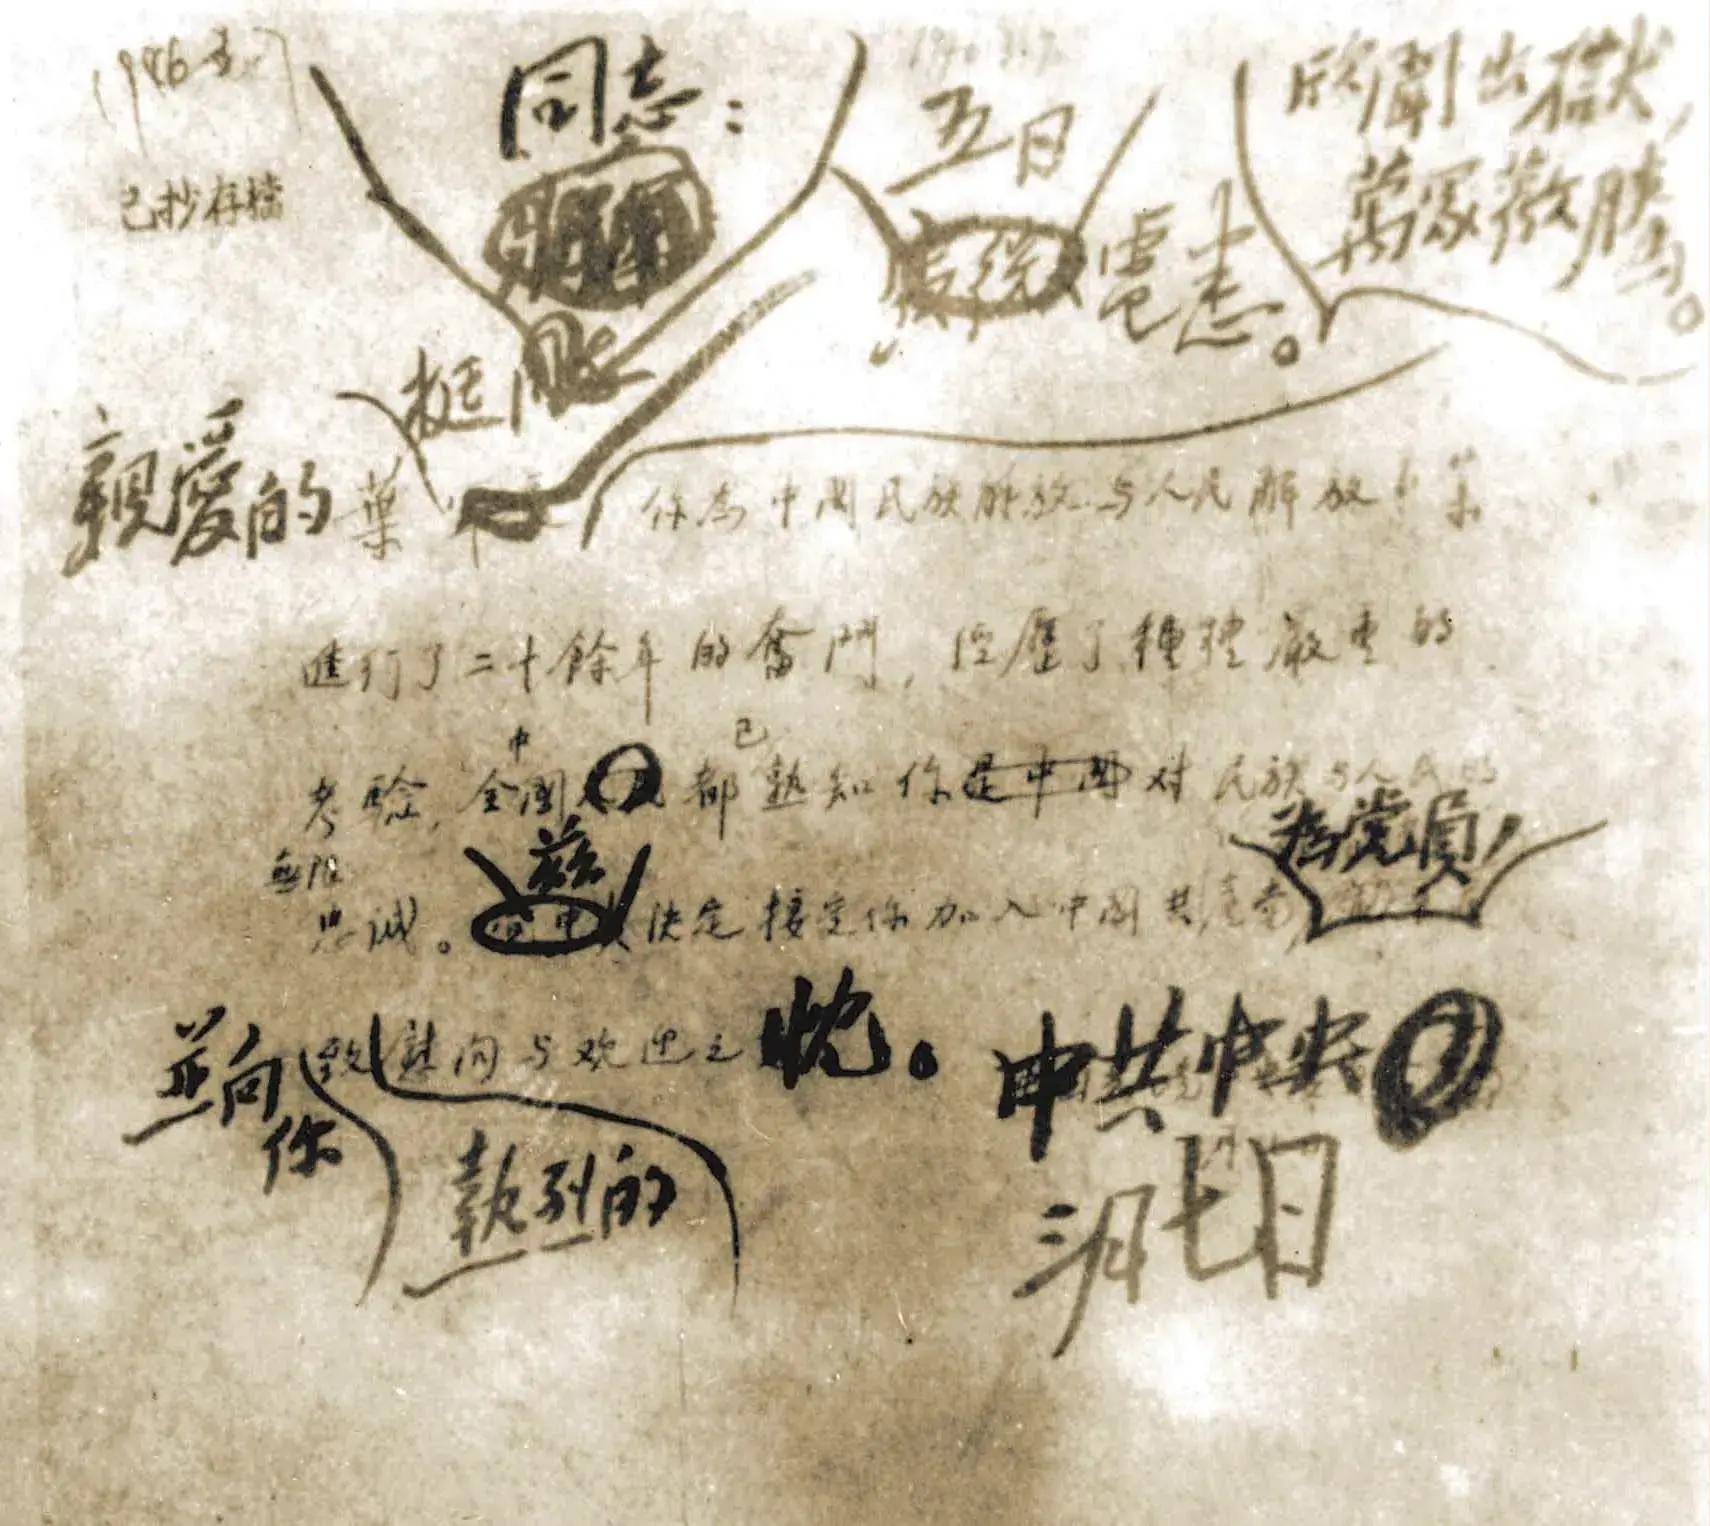 同志：
五月
電悉。
欣聞出獄，
萬眾歡騰。
已抄存檔
挺同志
親愛的葉
你為中國民族解放与人民解放
進行了二十餘年的奮鬥，經歷了種種嚴重的
中
已
考驗，全國 都熟知你是中國對民族与人民的
無限
茲
為黨員，
忠誠。決定接受你加入中國共產黨
並向
你
致慰问与欢迎之忱。
熱烈的
中共中央
三月七日